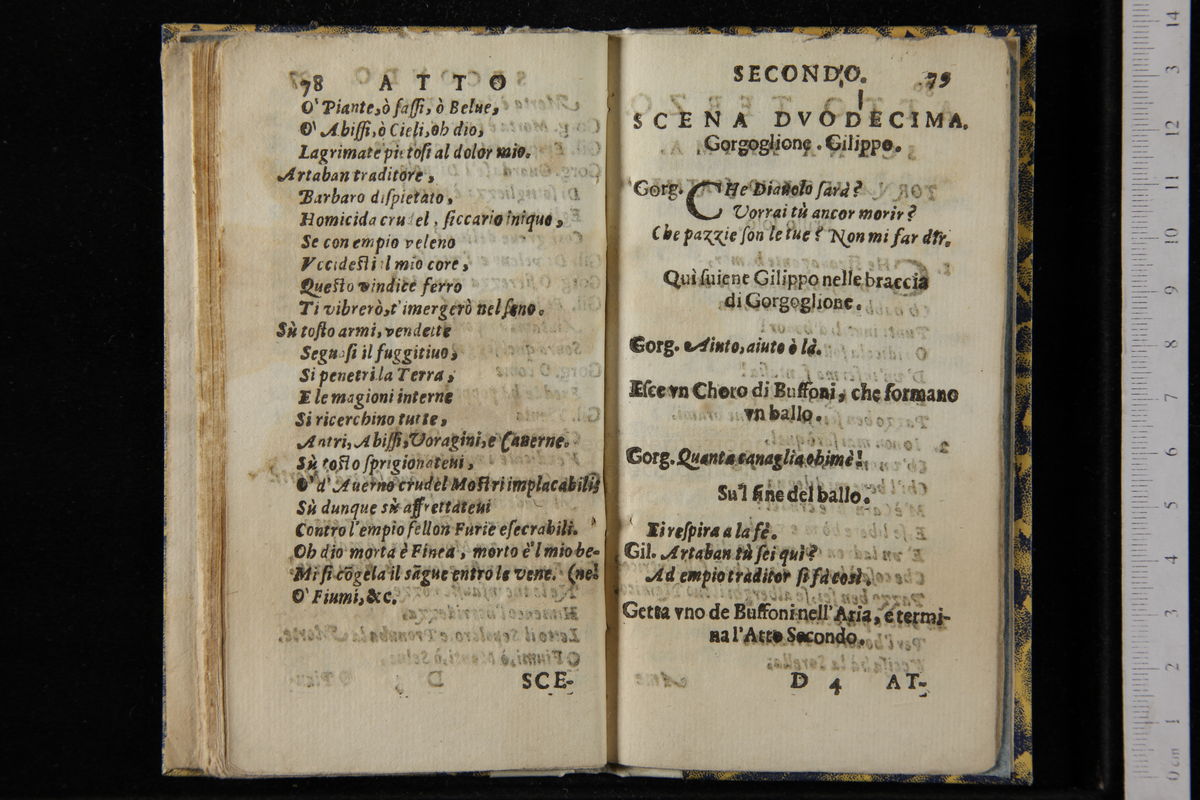 78 ATTO
O' Piante, ò sassi, ò Belue,
O' Abissi, ò Cieli, oh dio,
Lagrimate pietosi al dolor mio.
Artaban traditore,
Barbaro dispietato,
Homicida crudel, siccario iniquo,
Se con empio veleno
Vccidesti il mio core,
Questo vindice ferro
Ti vibrerò, t'imergerò nel seno.
Sù tosto armi, vendette
Seguasi il fuggitiuo,
Si penetri la Terra,
E le magioni interne
Si ricerchino tutte,
Antri, Abissi, Voragini, e Cauerne.
Sù tosto sprigionateui,
O' d'Auerno crudel Mostri implacabili
Sù dunque sù affrettateui
Contro l'empio fellon Furie esecrabili.
Oh dio morta è Finea, morto è'l mio be-
Mi si cõgela il sãgue entro le vene. (ne!
O' Fiumi, &c.
SCE-
SECONDO. 79
SCENA DVODECIMA.
Gorgoglione. Gilippo.
Gorg. CHe Diauolo sarà?
Vorrai tù ancor morir?
Che pazzie son le tue? Non mi far dir.
Quì suiene Gilippo nelle braccia
di Gorgoglione.
Gorg. Aiuto, aiuto ò là.
Esce vn Choro di Buffoni, che formano
vn ballo.
Gorg. Quanta canaglia ohimè!
Su'l fine del ballo.
Ei respira a la fè.
Gil. Artaban tù sei quì?
Ad empio traditor si fà così.
Getta vno de Buffoni nell'Aria, e termi-
na l'Atto Secondo.
D 4 AT-
14
3
12
11
10
9
8
7
6
5
4
3
2
1
0 cm